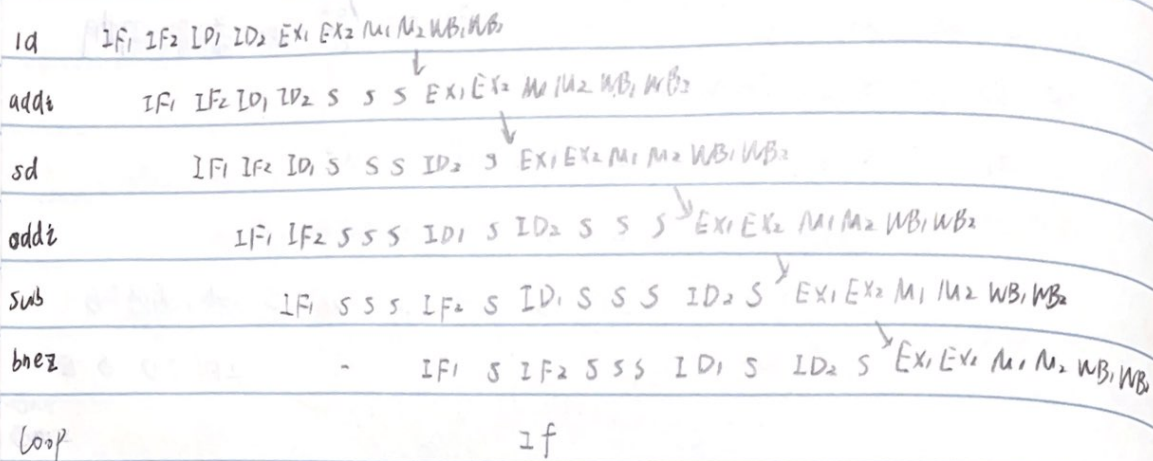 ld IF1 IF2 ID1 ID2 EX1 EX2 M1 M2 WB1 WB2
addi IF1 IF2 ID1 ID2 S S S EX1 EX2 M1 M2 WB1 WB2
sd IF1 IF2 ID1 S S S ID2 S EX1 EX2 M1 M2 WB1 WB2
addi IF1 IF2 S S S ID1 S ID2 S S S EX1 EX2 M1 M2 WB1 WB2
sub IF1 S S S IF2 S ID1 S S S ID2 S EX1 EX2 M1 M2 WB1 WB2
bnez - IF1 S IF2 S S S ID1 S ID2 S EX1 EX2 M1 M2 WB1 WB2
Loop If